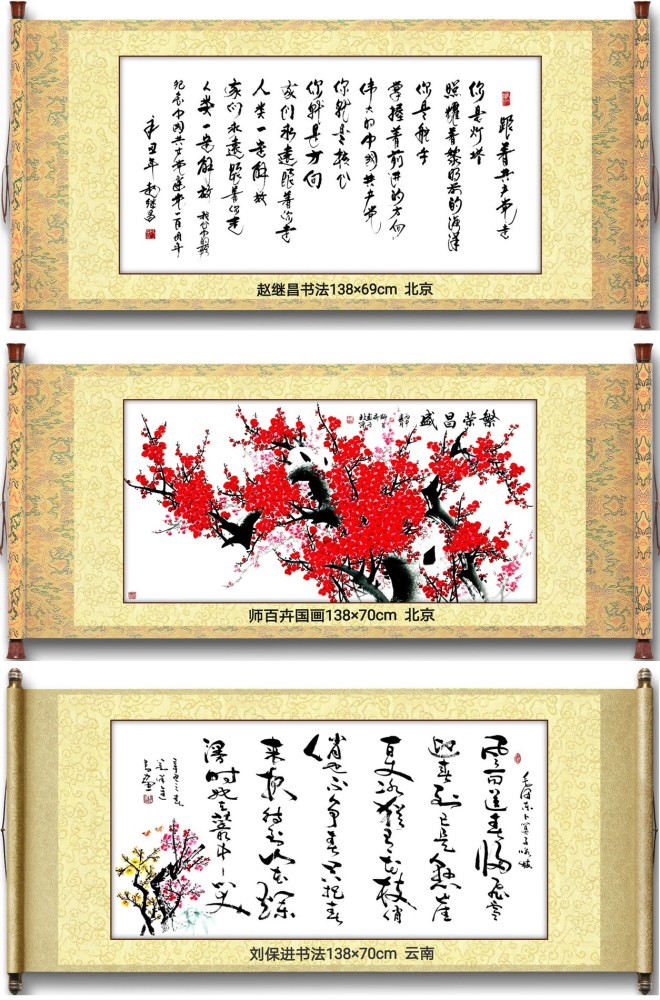 跟着共产党走
你是灯塔
照耀着黎明前的海洋
你是舵手
掌握着前进的方向
伟大的中国共产党
你就是核心
你就是方向
我们永远跟着你走
人类一定解放
我们永远跟着你走
人类一定解放
纪念中国共产党建党一百周年
辛丑年赵继昌
赵继昌书法138×69cm 北京
繁荣昌盛
师百卉国画138×70cm 北京
毛泽东卜算子咏梅
风雨送春归飞雪
迎春到已是悬崖
百丈冰犹有花枝俏
俏也不争春只把春
来报待到山花烂
漫时她在丛中笑
刘保进书法138×70cm 云南